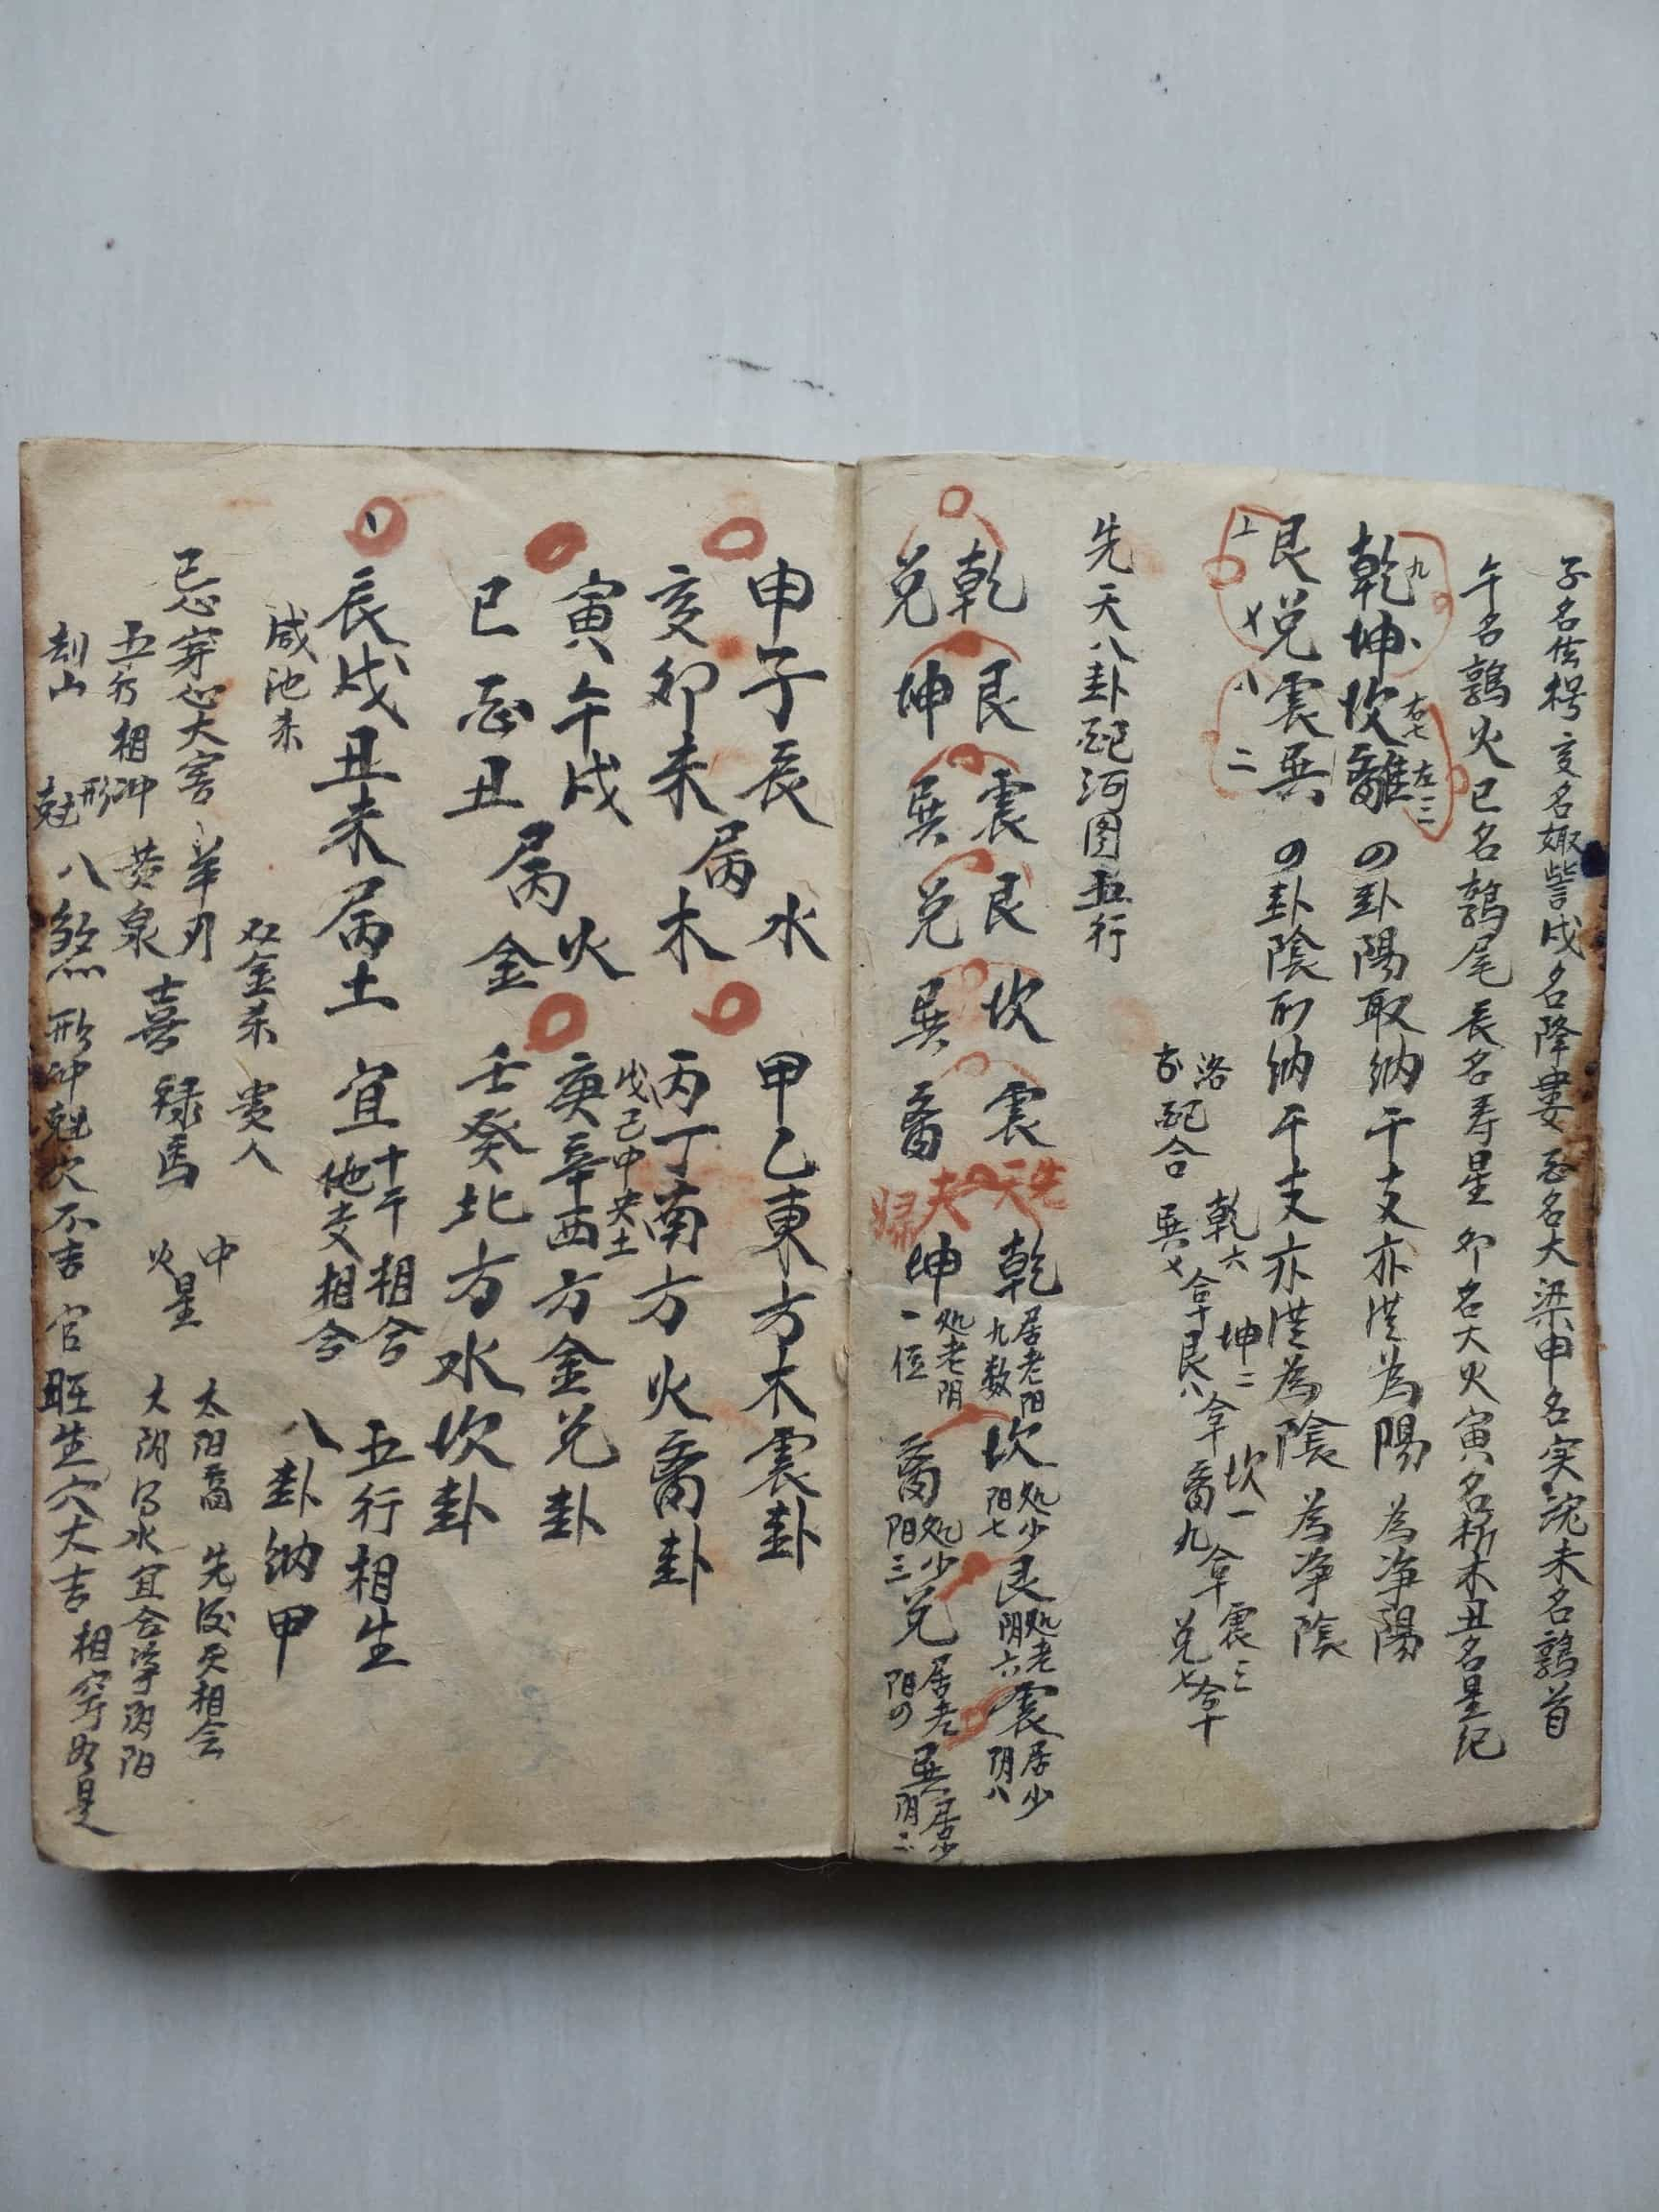 子名玄枵 亥名娵訾戌名降婁 酉名大梁申名实沈未名鶉首
午名鶉火巳名鶉尾 辰名寿星 卯名大火寅名析木丑名星纪
九 右七 左三
乾坤坎離の卦陽取納干支亦從為陽 為净陽
艮兑震巽の卦陰取納干支亦從為陰 為净陰
上 乂 八 二
洛
配合 乾六 巽乂 合十 坤二 艮八 合十 坎一 离九 合十 震三 兑七 合十
先天八卦配河图五行
乾 艮 震 艮 坎 震
兑 坤 巽 兑 巽 离
先天 夫婦
乾 居老阳九数 坎 处少阳七 艮 处老阴六 震 居少阴八
坤 处老阴一位 离 处少阳三 兑 居老阳の 巽 居少阴二
申子辰 水
亥卯未 属 木
寅午戌 火
巳酉丑 属 金
辰戌丑未属土
甲乙東方木震卦
丙丁南方火离卦
戊己中央土
庚辛西方金兑卦
壬癸北方水坎卦
宜 十干相合 地支相合 五行相生
八卦納甲
咸池杀 双金杀 贵人
忌穿心大害 羊刃 喜 禄馬 中 火星 太阳 先后天相会
五行相冲 黄泉 大阴 水宜合净阴阳
刦山 形 尅 八煞 形冲尅穴不吉 官旺生穴大吉 相穿 是